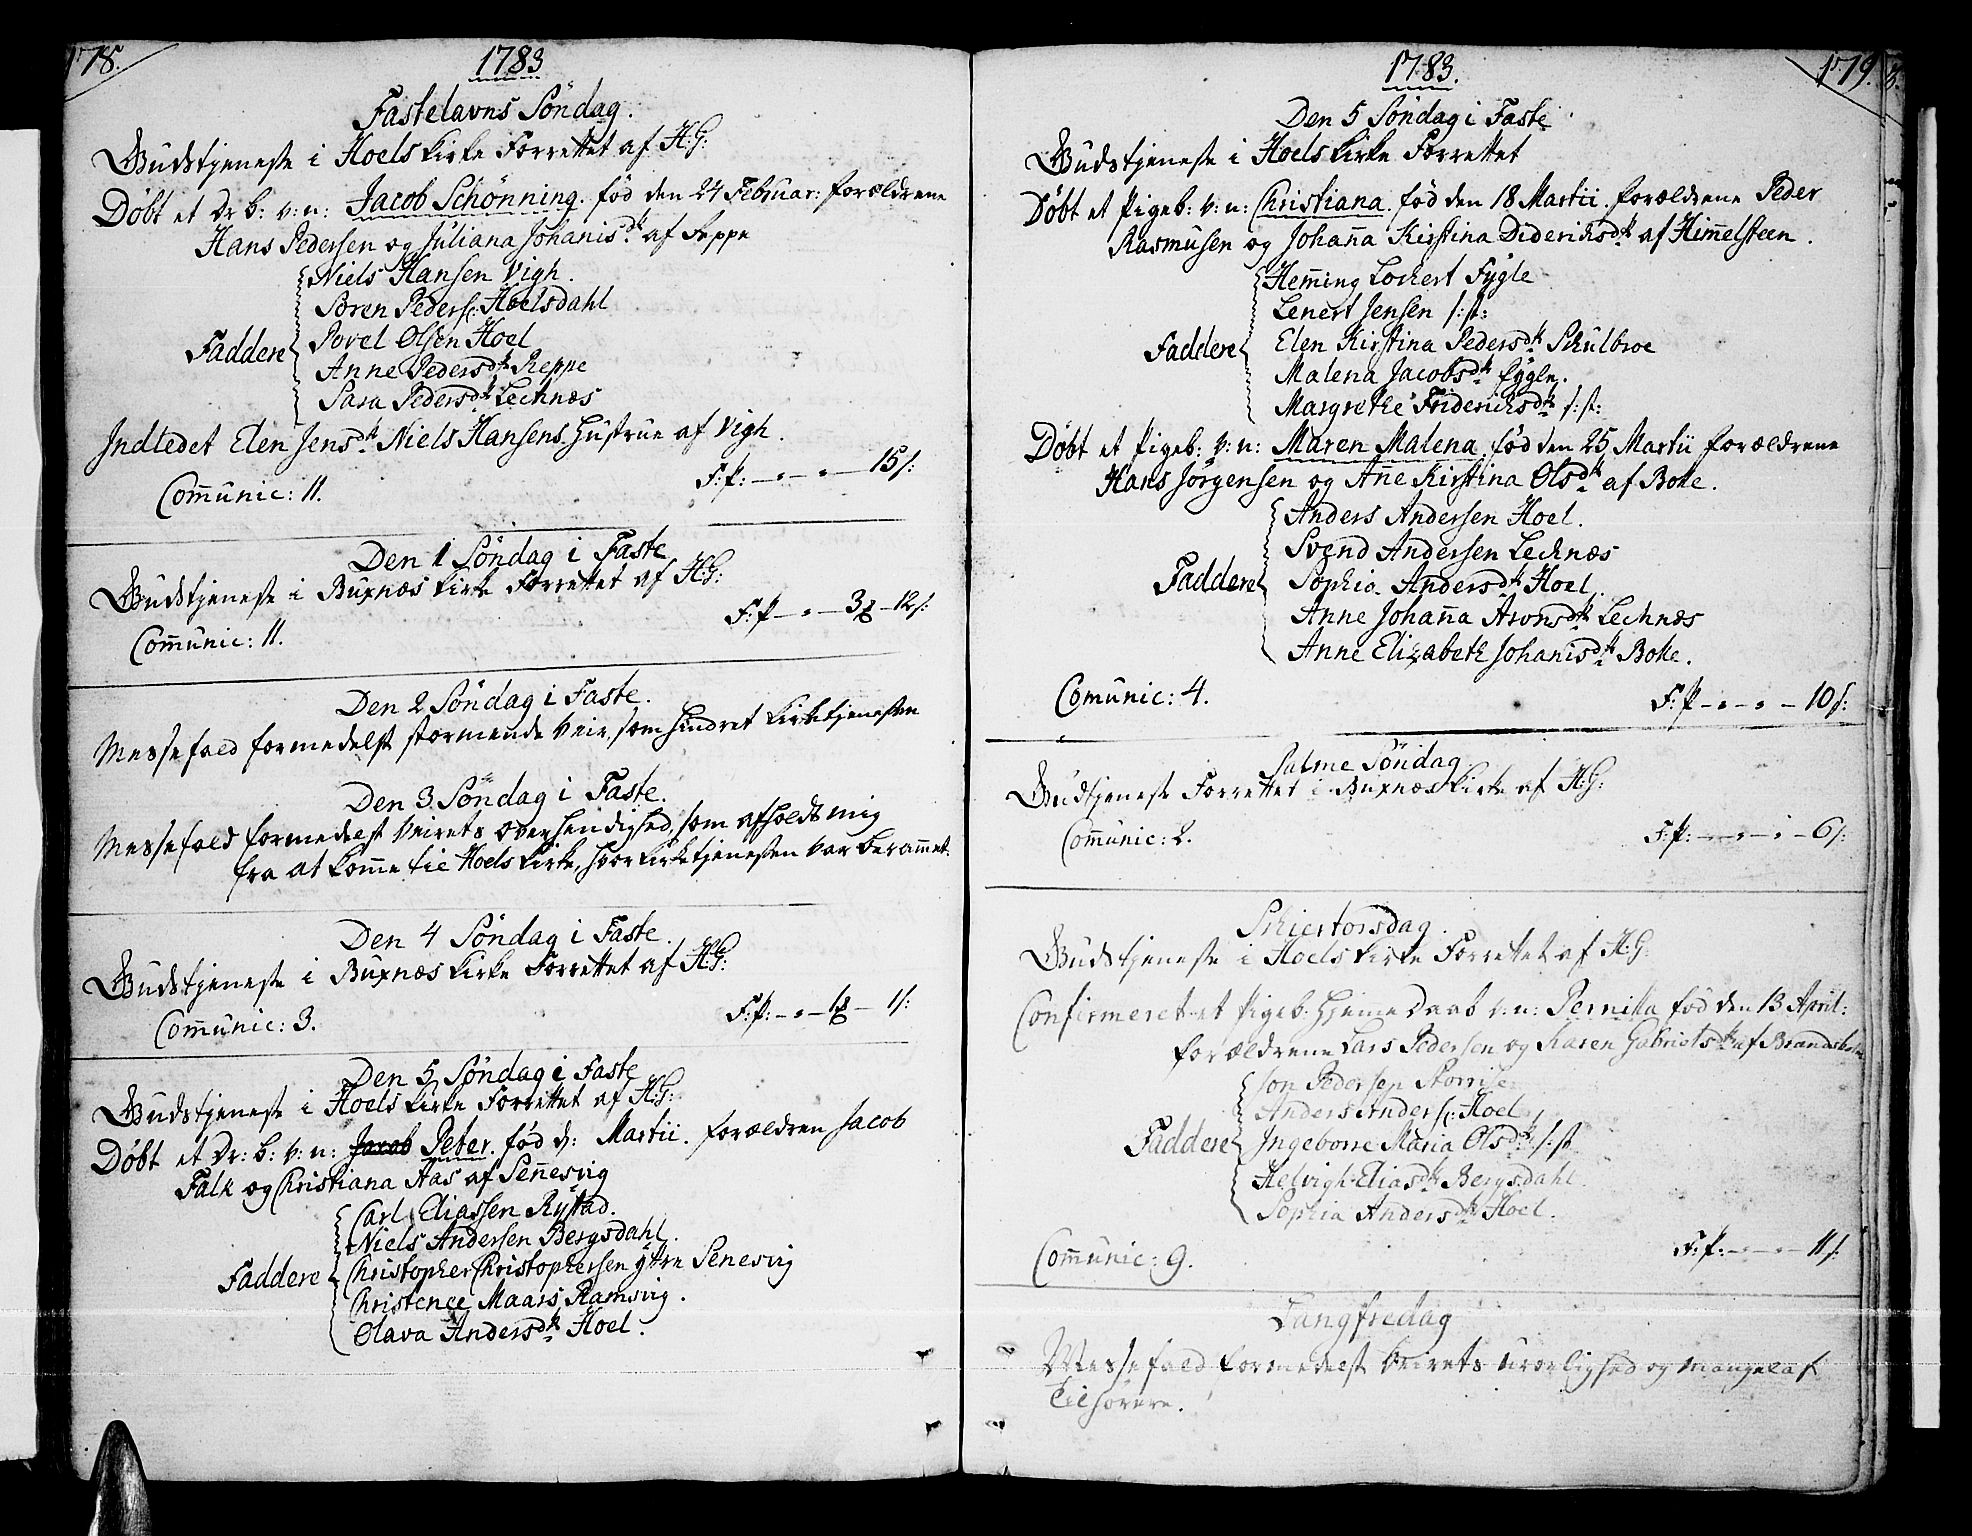 178.
1783
Fastelavns Söndag.
Gudstjeneste i Hoels kirke Forrettet af H:G:
Döbt et Dr: b: v: n: Jacob Schönning. föd den 24 Februar: forældrene
Hans Pedersen og Juliana Johanisdtr af Reppe
Niels Hansen Vigh.
Sören Peders: Hoelsdahl
Povel Olsen Hoel
Faddere
Anne Pedersdtr Reppe
Sara Pedersdtr Lechnæs
Indledet Elen Jensdtr Niels Hansens Hustrue af Vigh.
F: P: — " — " — 15 s:
Com̄unic: 11.
Den 1 Söndag i Faste
Gudstjeneste i Buxnæs kirke Forrettet af H:G:
F: P — " — 3 — 12 s:
Com̄unic: 11.
Den 2 Söndag i Faste.
Messefald formedelst stormende Veir, som hindret kirketjenesten
Den 3 Söndag i Faste.
Messefald formedelst Veirets overhendighed, som afholdt mig
fra at kom̄e til Hoels kirke, hvor kirketjenesten var beram̄et.
Den 4 Söndag i Faste.
Gudstjeneste i Buxnæs kirke Forrettet af H:G:
F: P: — " — 1 — 1 s:
Com̄unic: 3.
Den 5 Söndag i Faste
Gudstjeneste i Hoels kirke Forrettet af H:G:
Döbt et Dr: b: v: n: Jacob Peter. föd d: Martii. forældren Jacob
Falk og Christiana Aas af Sen̄esvig
Carl Eliassen Rystad.
Niels Andersen Bergsdahl.
Faddere Christopher Christophersen yttre Senesvig
Christence Maars Ramsvig.
Olava Andersdtr Hoel.
1783.
179.
Den 5 Söndag i Faste
Gudstjeneste i Hoels kirke Forrettet
Döbt et Pigeb: v: n: Christiana. föd den 18 Martii. forældrene Peder
Rasmusen og Johan̄a Kirstina Dideriksdtr af Him̄elsteen.
Hem̄ing Lockert Fygle
Lenert Jensen s: st:
Faddere Elen Kirstina Pedersdtr Schulbroe
Malena Jacobsdtr Fygle.
Margrethe Frideriksdtr s: st:
Döbt et Pigeb: v: n: Maren Malena. föd den 25 Martii forældrene
Hans Jörgensen og An̄e Kirstina Olsdtr af Bolle.
Anders Andersen Hoel.
Svend Andersen Lechnæs
Faddere Sophia Andersdtr Hoel.
Anne Johan̄a Aronsdtr Lechnæs
Anne Elizabeth Johanisdtr Bolle.
Com̄unic: 4.
F: P — " — " — 10 s:
Palme Söndag
Gudstjeneste Forrettet i Buxnæs kirke af H:G:
F: P: — " — " — 6 s:
Com̄unic: 2.
Schiertorsdag.
Gudstjeneste i Hoels kirke Forrettet af H:G:
Confirmeret et Pigeb: hjem̄e Daab v: n: Pernilla föd den 13 April:
forældrene Lars Pedersen og Karen Gabrielsdtr af Brandsholm
Jon Pedersen Storrise
Anders Anders: Hoel
Faddere Ingeborre Maria Olsdtr s: st
Helvigh Eliasdtr Bergsdahl
Sophia Andersdtr Hoel.
F: P: — " — " — 11 s:
Com̄unic: 9.
Langfredag
Messefald formedelst Veirets uroelighed og mangel af
Tilhörere.